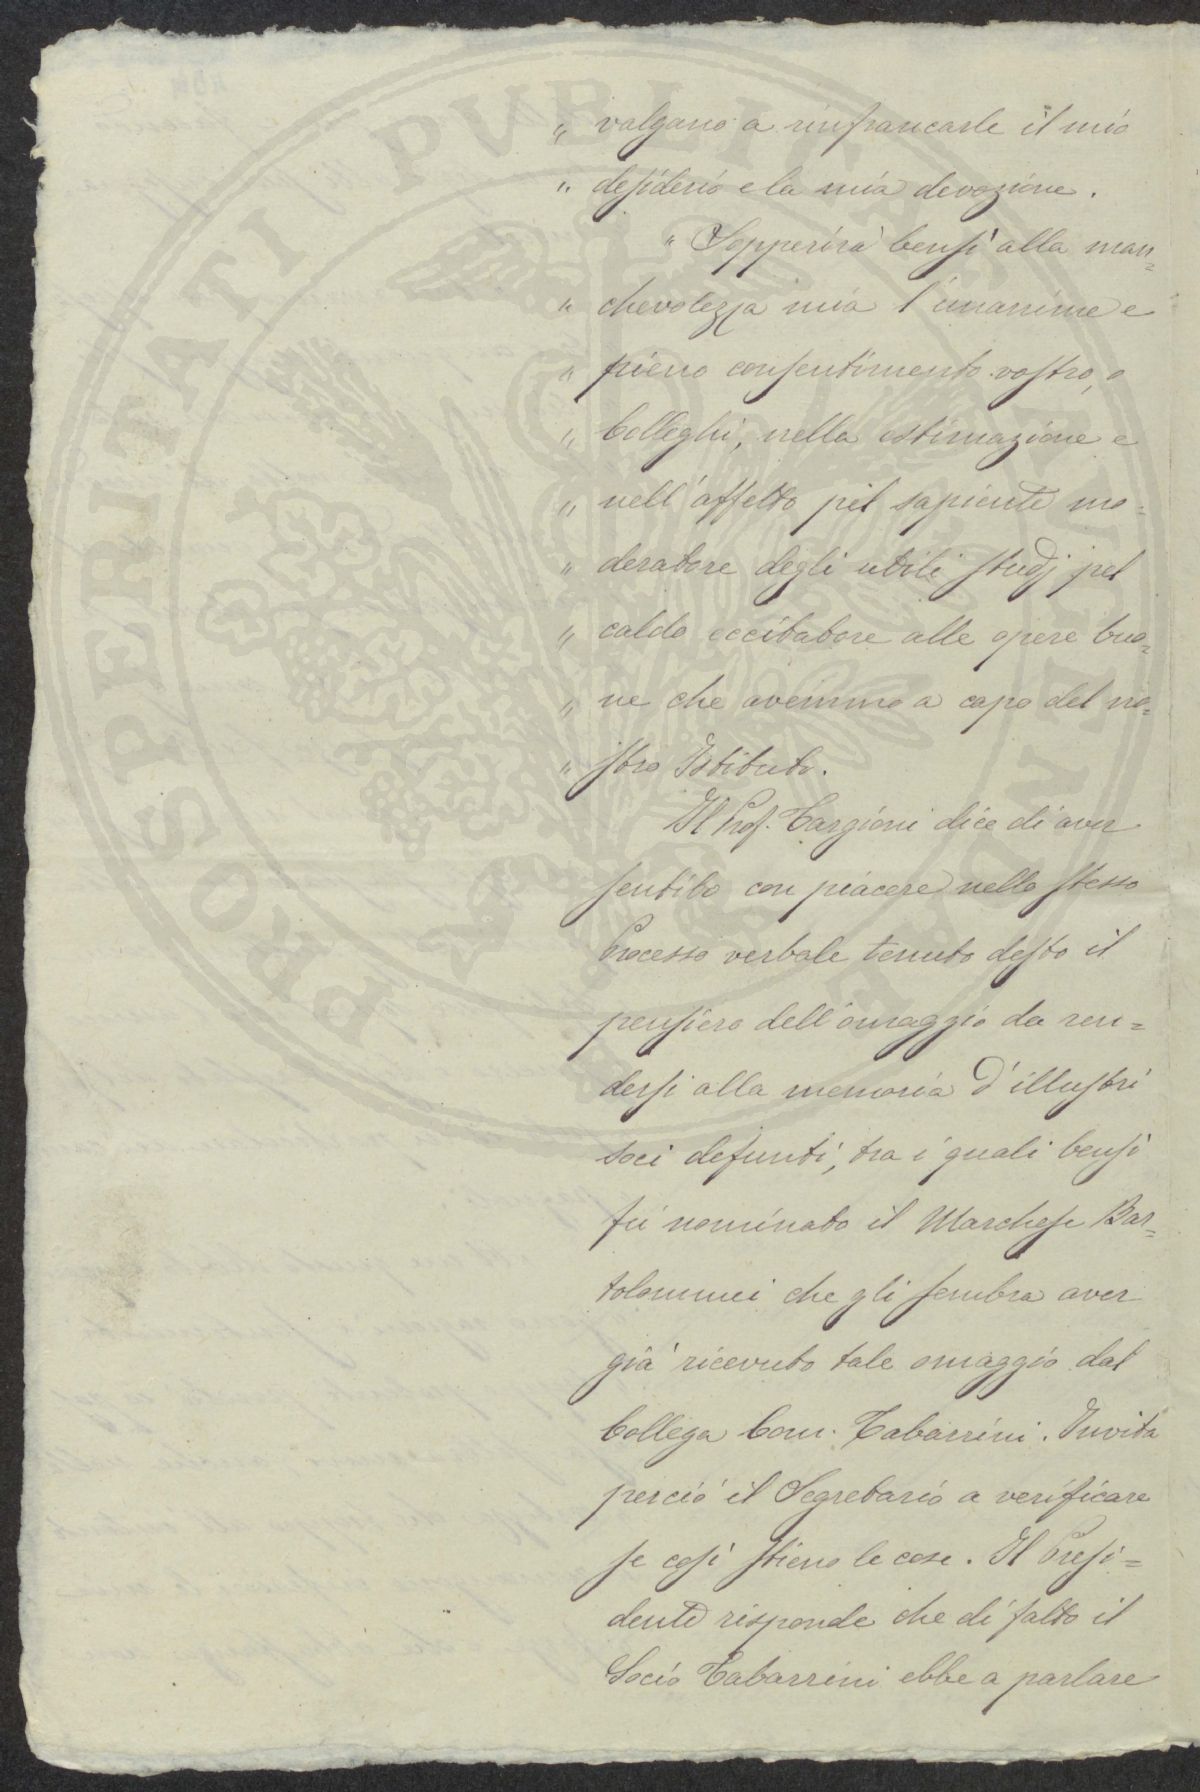 „ valgano a rinfrancarle il mio
„ desiderio e la mia devozione.
„ Sopperirà bensì alla man=
„ chevolezza mia l'unanime e
„ pieno consentimento vostro, o
„ Colleghi, nella estimazione e
„ nell'affetto pel sapiente mo=
„ deratore degli utili studj pel
„ caldo eccitatore alle opere buo=
„ ne che avemmo a capo del no=
„ stro Istituto.
Il Prof. Targioni dice di aver
sentito con piacere nello stesso
Processo verbale tenuto desto il
pensiero dell'omaggio da ren=
dersi alla memoria d'illustri
soci defunti, tra i quali bensì
fù nominato il Marchese Bar=
tolommei che gli sembra aver
già ricevuto tale omaggio dal
Collega Com. Tabarrini. Invita
perciò il Segretario a verificare
se così stieno le cose. Il Presi=
dente risponde che di fatto il
Socio Tabarrini ebbe a parlare
PROSPERITATI PUBLICAE